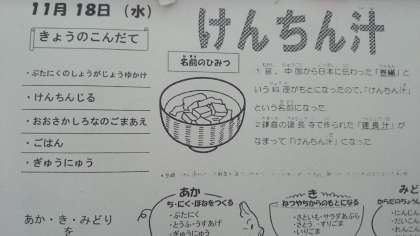 11月18日（水）
けんちん汁
きょうのこんだて
・ぶたにくのしょうがじょうゆかけ
・けんちんじる
・おおさかしろなのごまあえ
・ごはん
・ぎゅうにゅう
名前のひみつ
1 昔、中国から日本に伝わった「巻繊」と
いう料理がもとになったので、「けんちん汁」
という名前になった
2 鎌倉の建長寺で作られた「建長汁」が
なまって「けんちん汁」になった
あか・き・みどり
を
あか
ち・にく・ほねをつくる
・ぶたにく
・とうふ・うすあげ
・ぎゅうにゅう
き
ねつやちからのもとになる
・さといも・サラダあぶら
・さとう・すりごま
・いりごま
みど
からだのちょう
・にんじん
・だいこん